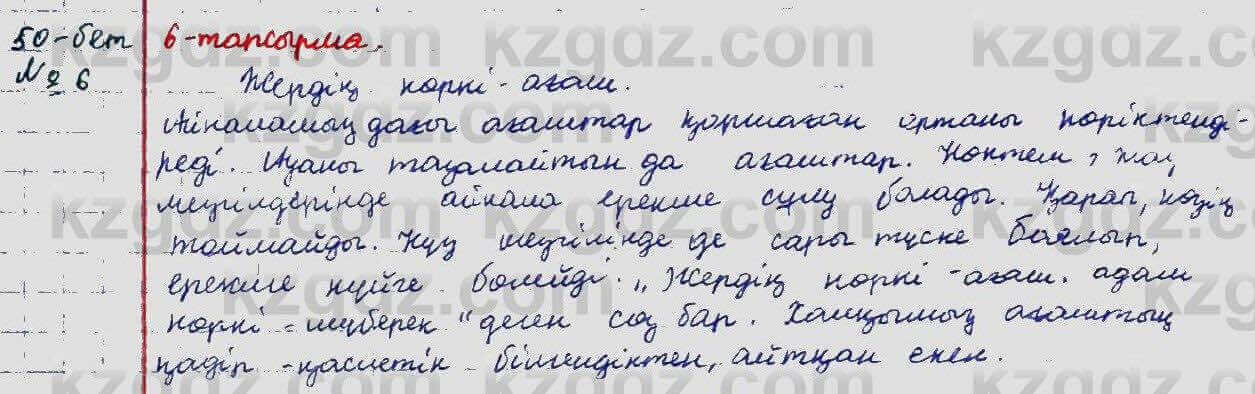 50-бет 6-тапсырма.
№ 6 Жердің көркі - ағаш.
Айналамыздағы ағаштар қоршаған ортаны көріктенді-
реді. Ауаны тазалайтын да ағаштар. Көктем, жаз
мезгілдерінде айнала ерекше сұлу болады. Қарап, көзің
тоймайды. Күз мезгілінде де сары түске боялып,
ерекше күйге бөлейді. „Жердің көркі - ағаш. адам
көркі - шүберек" деген сөз бар. Халқымыз ағаштың
қадір - қасиетін білгендіктен, айтқан екен.